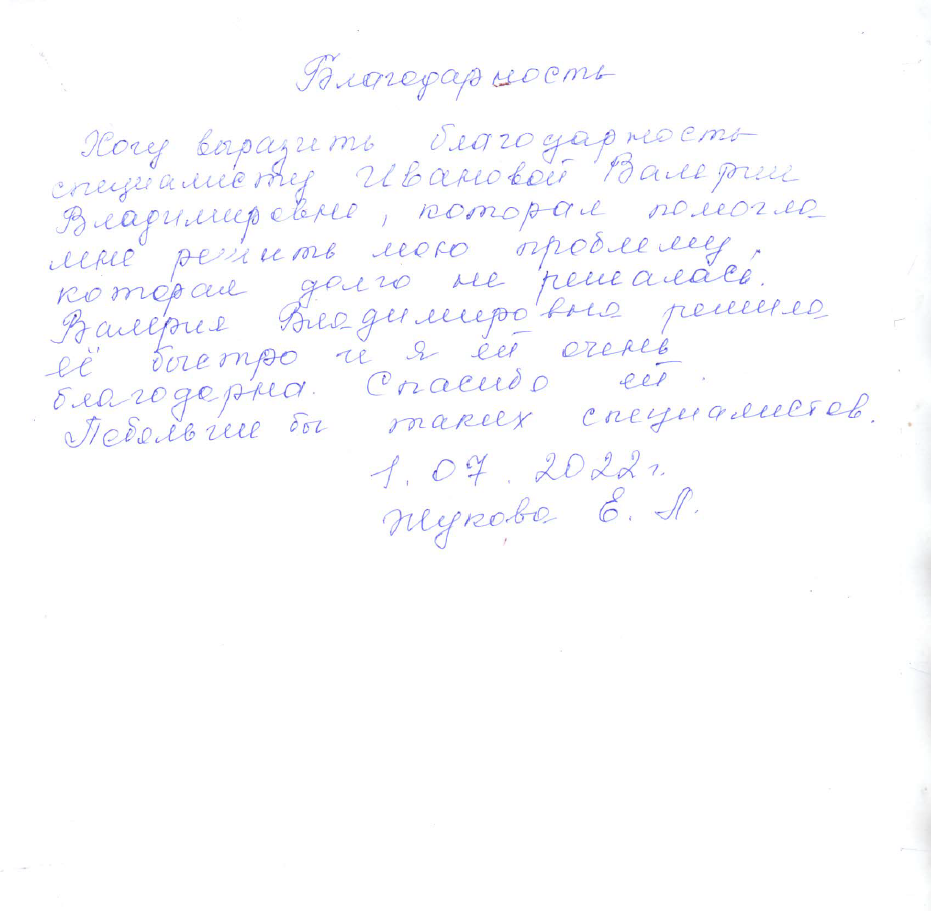 Благодарность
Хочу выразить благодарность
специалисту Ивановой Валерии
Владимировне, которая помогла
мне решить мою проблему,
которая долго не решалась.
Валерия Владимировна решила
её быстро и я ей очень
благодарна. Спасибо ей.
Побольше бы таких специалистов.
1.07.2022г.
Жукова Е. Л.